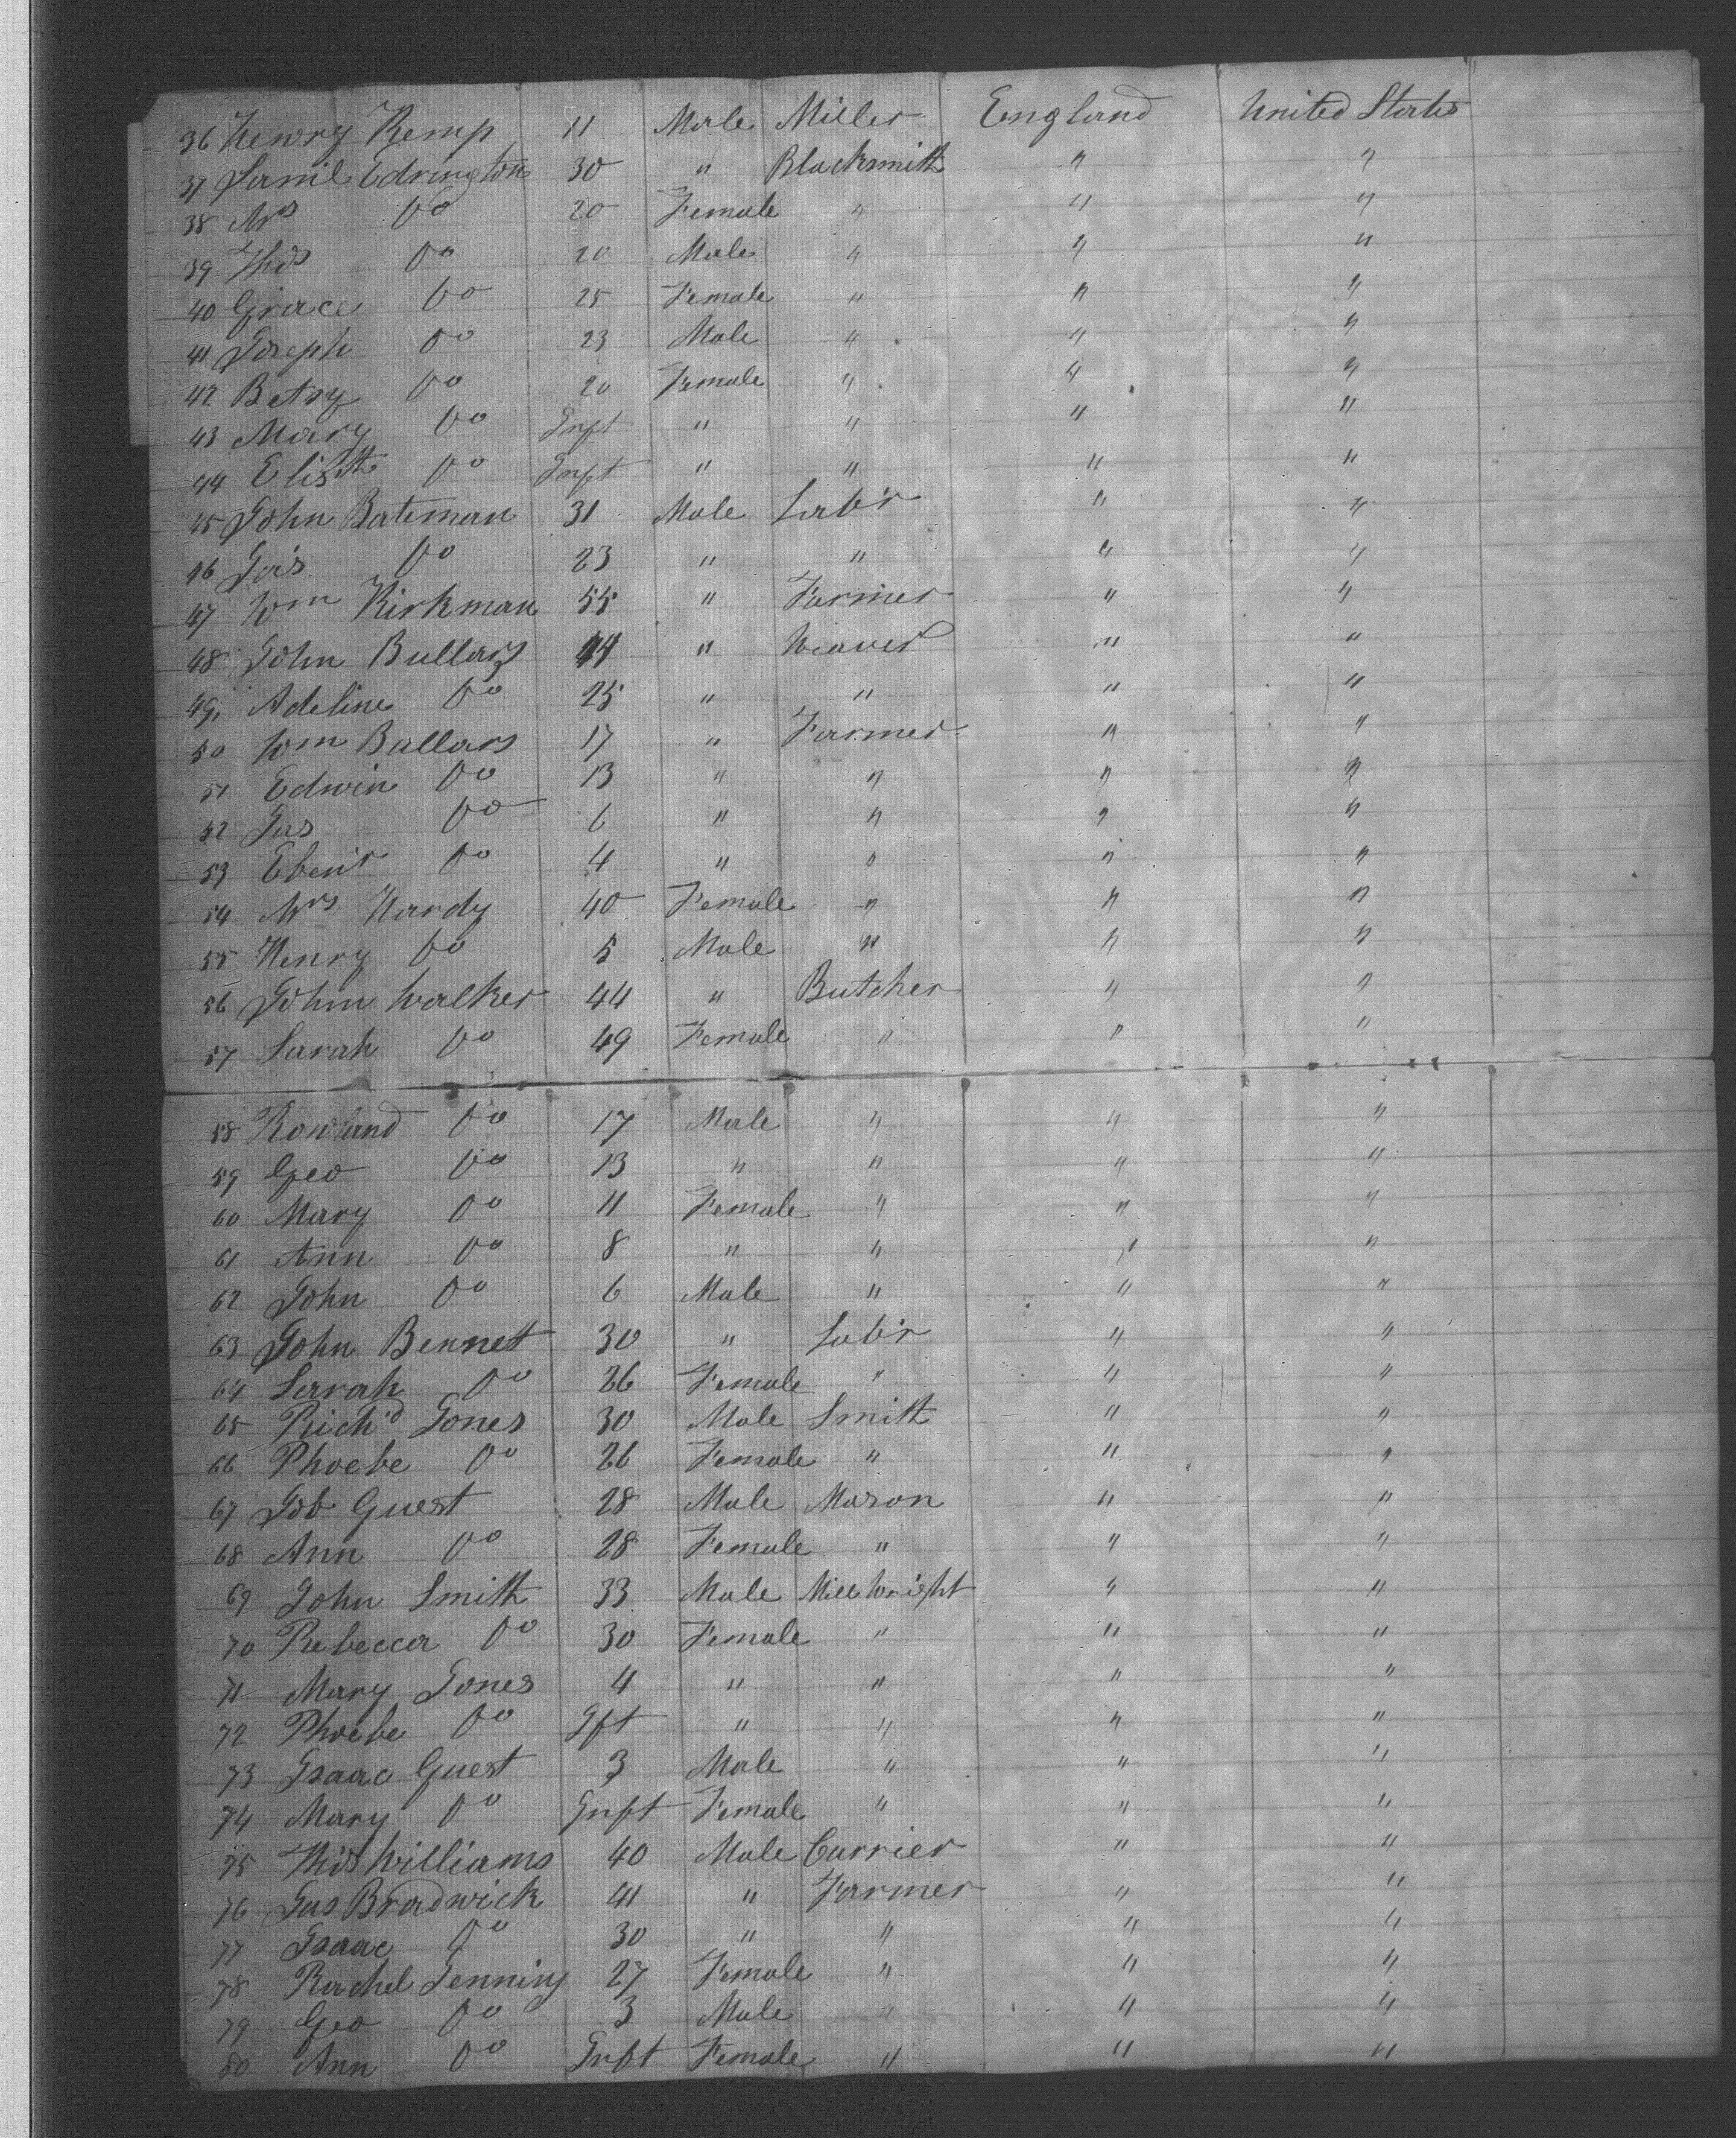 36 Henry Kemp 11 Male Miller England United States
37 Saml Edrington 30 " Blacksmith " "
38 Mrs Do 20 Female " " "
39 Thos Do 20 Male " " "
40 Grace Do 25 Female " " "
41 Joseph Do 23 Male " " "
42 Betsy Do 20 Female " " "
43 Mary Do Inft " " " "
44 Elisth Do Inft " " " "
45 John Bateman 31 Male Lab'r " "
46 Jas Do 23 " " " "
47 Wm Kirkman 55 " Farmer " "
48 John Bullars 44 " Weaver " "
49 Adeline Do 25 " " " "
50 Wm Bullars 17 " Farmer " "
51 Edwin Do 13 " " " "
52 Jas Do 6 " " " "
53 Eben'r Do 4 " " " "
54 Mrs Hardy 40 Female " " "
55 Henry Do 5 Male " " "
56 John Walker 44 " Butcher " "
57 Sarah Do 49 Female " " "
58 Rowland Do 17 Male " " "
59 Geo Do 13 " " " "
60 Mary Do 11 Female " " "
61 Ann Do 8 " " " "
62 John Do 6 Male " " "
63 John Bennett 30 " Lab'r " "
64 Sarah Do 26 Female " " "
65 Rich'd Jones 30 Male Smith " "
66 Phoebe Do 26 Female " " "
67 Job Guest 28 Male Mason " "
68 Ann Do 28 Female " " "
69 John Smith 33 Male Millwright " "
70 Rebecca Do 30 Female " " "
71 Mary Jones 4 " " " "
72 Phoebe Do Ift " " " "
73 Isaac Guest 3 Male " " "
74 Mary Do Inft Female " " "
75 Thos Williams 40 Male Currier " "
76 Jas Bradwick 41 " Farmer " "
77 Isaac Do 30 " " " "
78 Rachel Jenning 27 Female " " "
79 Geo Do 3 Male " " "
80 Ann Do Inft Female " " "